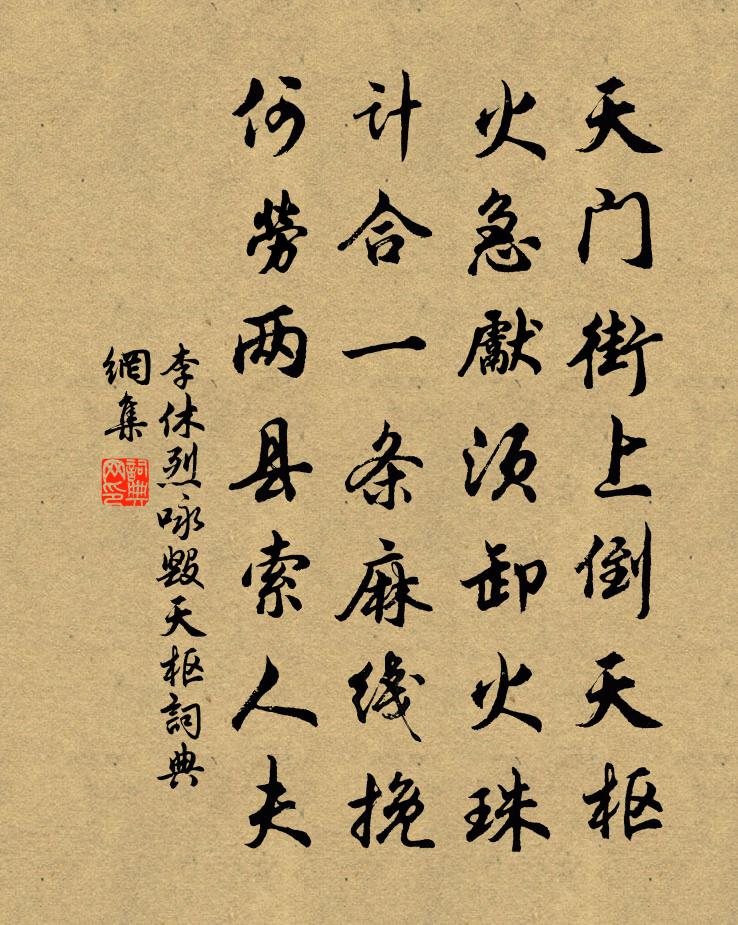 天门街上倒天枢
火急獻须卸火珠
计合一条麻线挽
何勞两县索人夫
李休烈咏毁天枢詞典
網集
詞典
网印